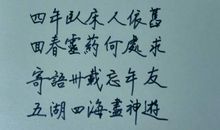 四年臥床人依舊
回春靈药何處求
寄語卅載忘年友
五湖四海盡神遊